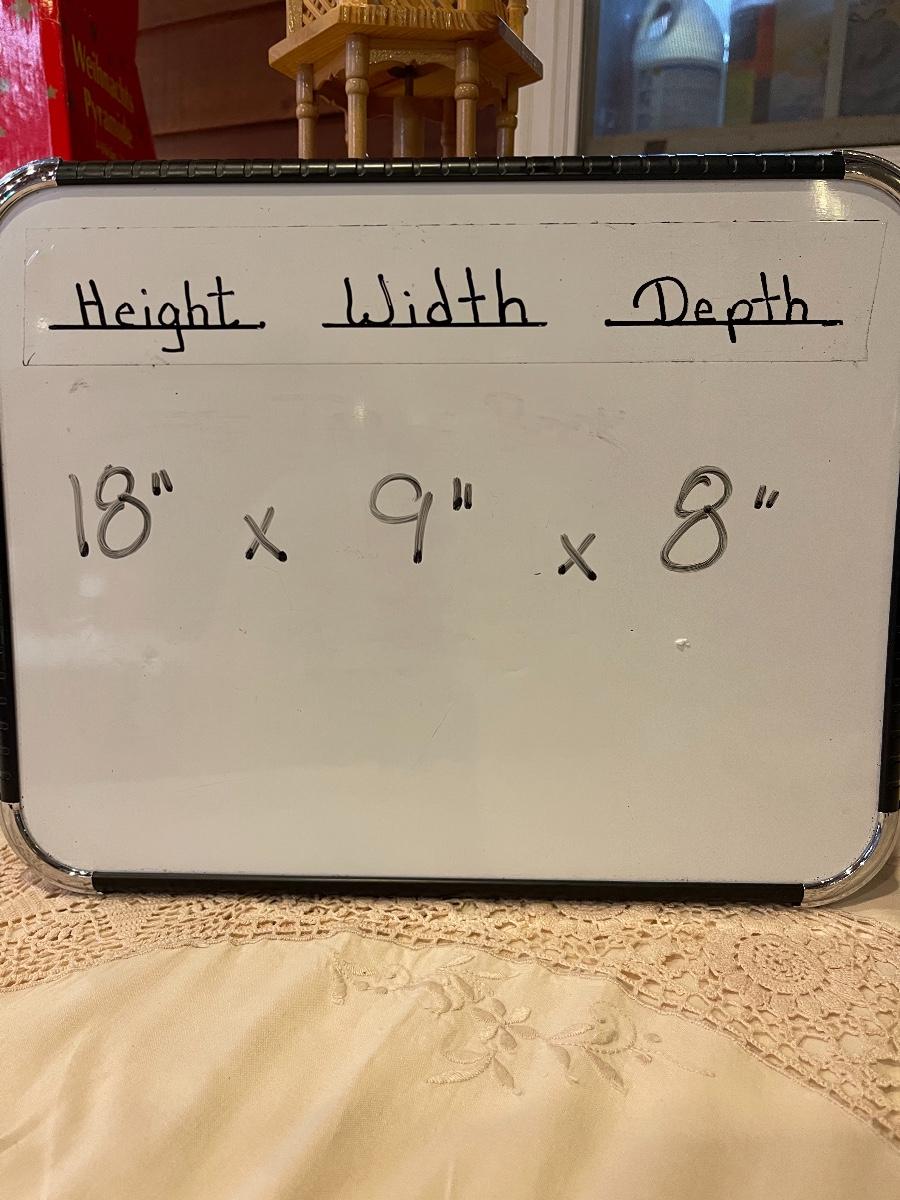 Weihnachts
Pyramide
Height Width Depth
18" x 9" x 8"